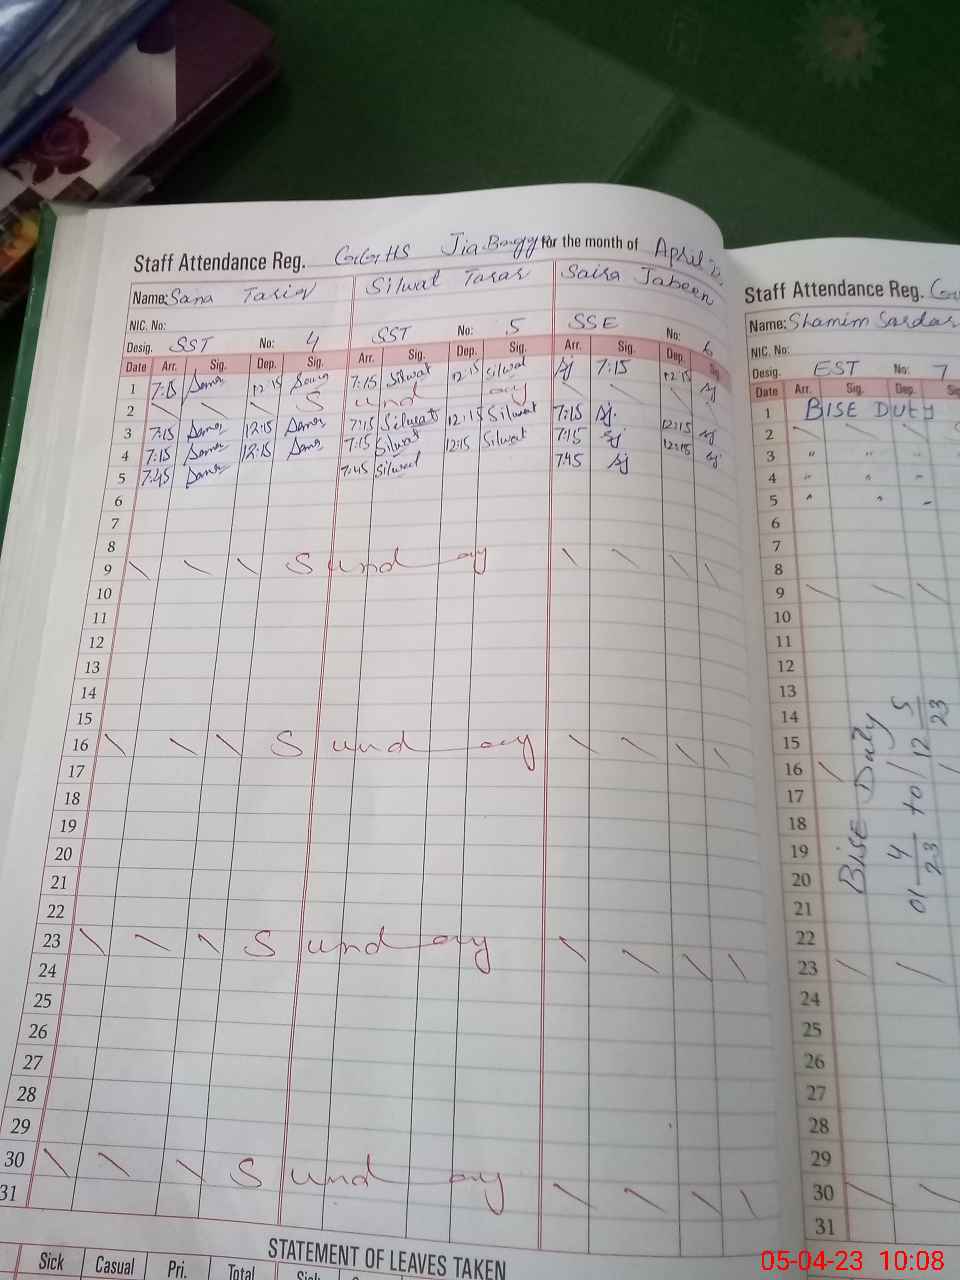 Staff Attendance Reg. GGHS Jia Bagga for the month of April
Name: Sana Tariq Silwat Tarar Saira Jabeen
NIC. No:
Desig. SST No: 4 SST No: 5 SSE No: 6
Date Arr. Sig. Dep. Sig. Arr. Sig. Dep. Sig. Arr. Sig. Dep. Sig.
1 7:15 Sana 12:15 Sana 7:15 Silwat 12:15 Silwat Sj 7:15 12:15 Sj
2 Sunday
3 7:15 Sana 12:15 Sana 7:15 Silwat 12:15 Silwat 7:15 Sj. 12:15 Sj
4 7:15 Sana 12:15 Sana 7:15 Silwat 12:15 Silwat 7:15 Sj 12:15 Sj
5 7:45 Sana 7:45 Silwat 7:45 Sj
6
7
8
9 Sunday
10
11
12
13
14
15
16 Sunday
17
18
19
20
21
22
23 Sunday
24
25
26
27
28
29
30 Sunday
31
STATEMENT OF LEAVES TAKEN
Sick Casual Pri. Total Sick
Staff Attendance Reg.
Name: Shamim Sardar
NIC. No:
Desig. EST No: 7
Date Arr. Sig. Dep.
1 BISE DUTY
2
3 " " "
4 " " "
5 " "
6
7
8
9
10
11
12
13
14
15
16
17
18
19
20
21
22
23
24
25
26
27
28
29
30
31
BISE Duty
01 4/23 to 12 5/23
05-04-23 10:08